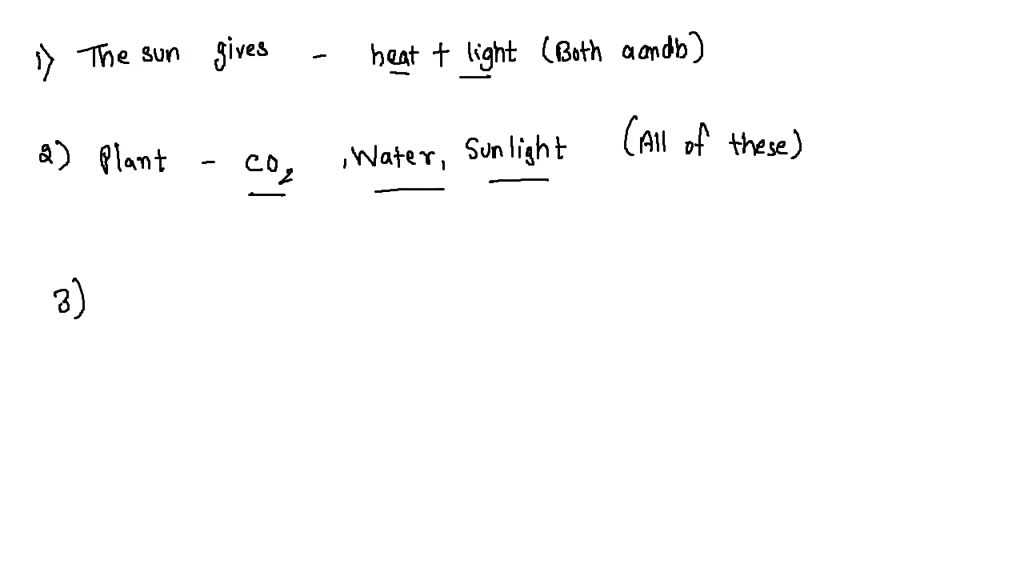 1) The sun gives - heat + light (Both a and b)
2) Plant - CO2 , Water, Sunlight (All of these)
3)